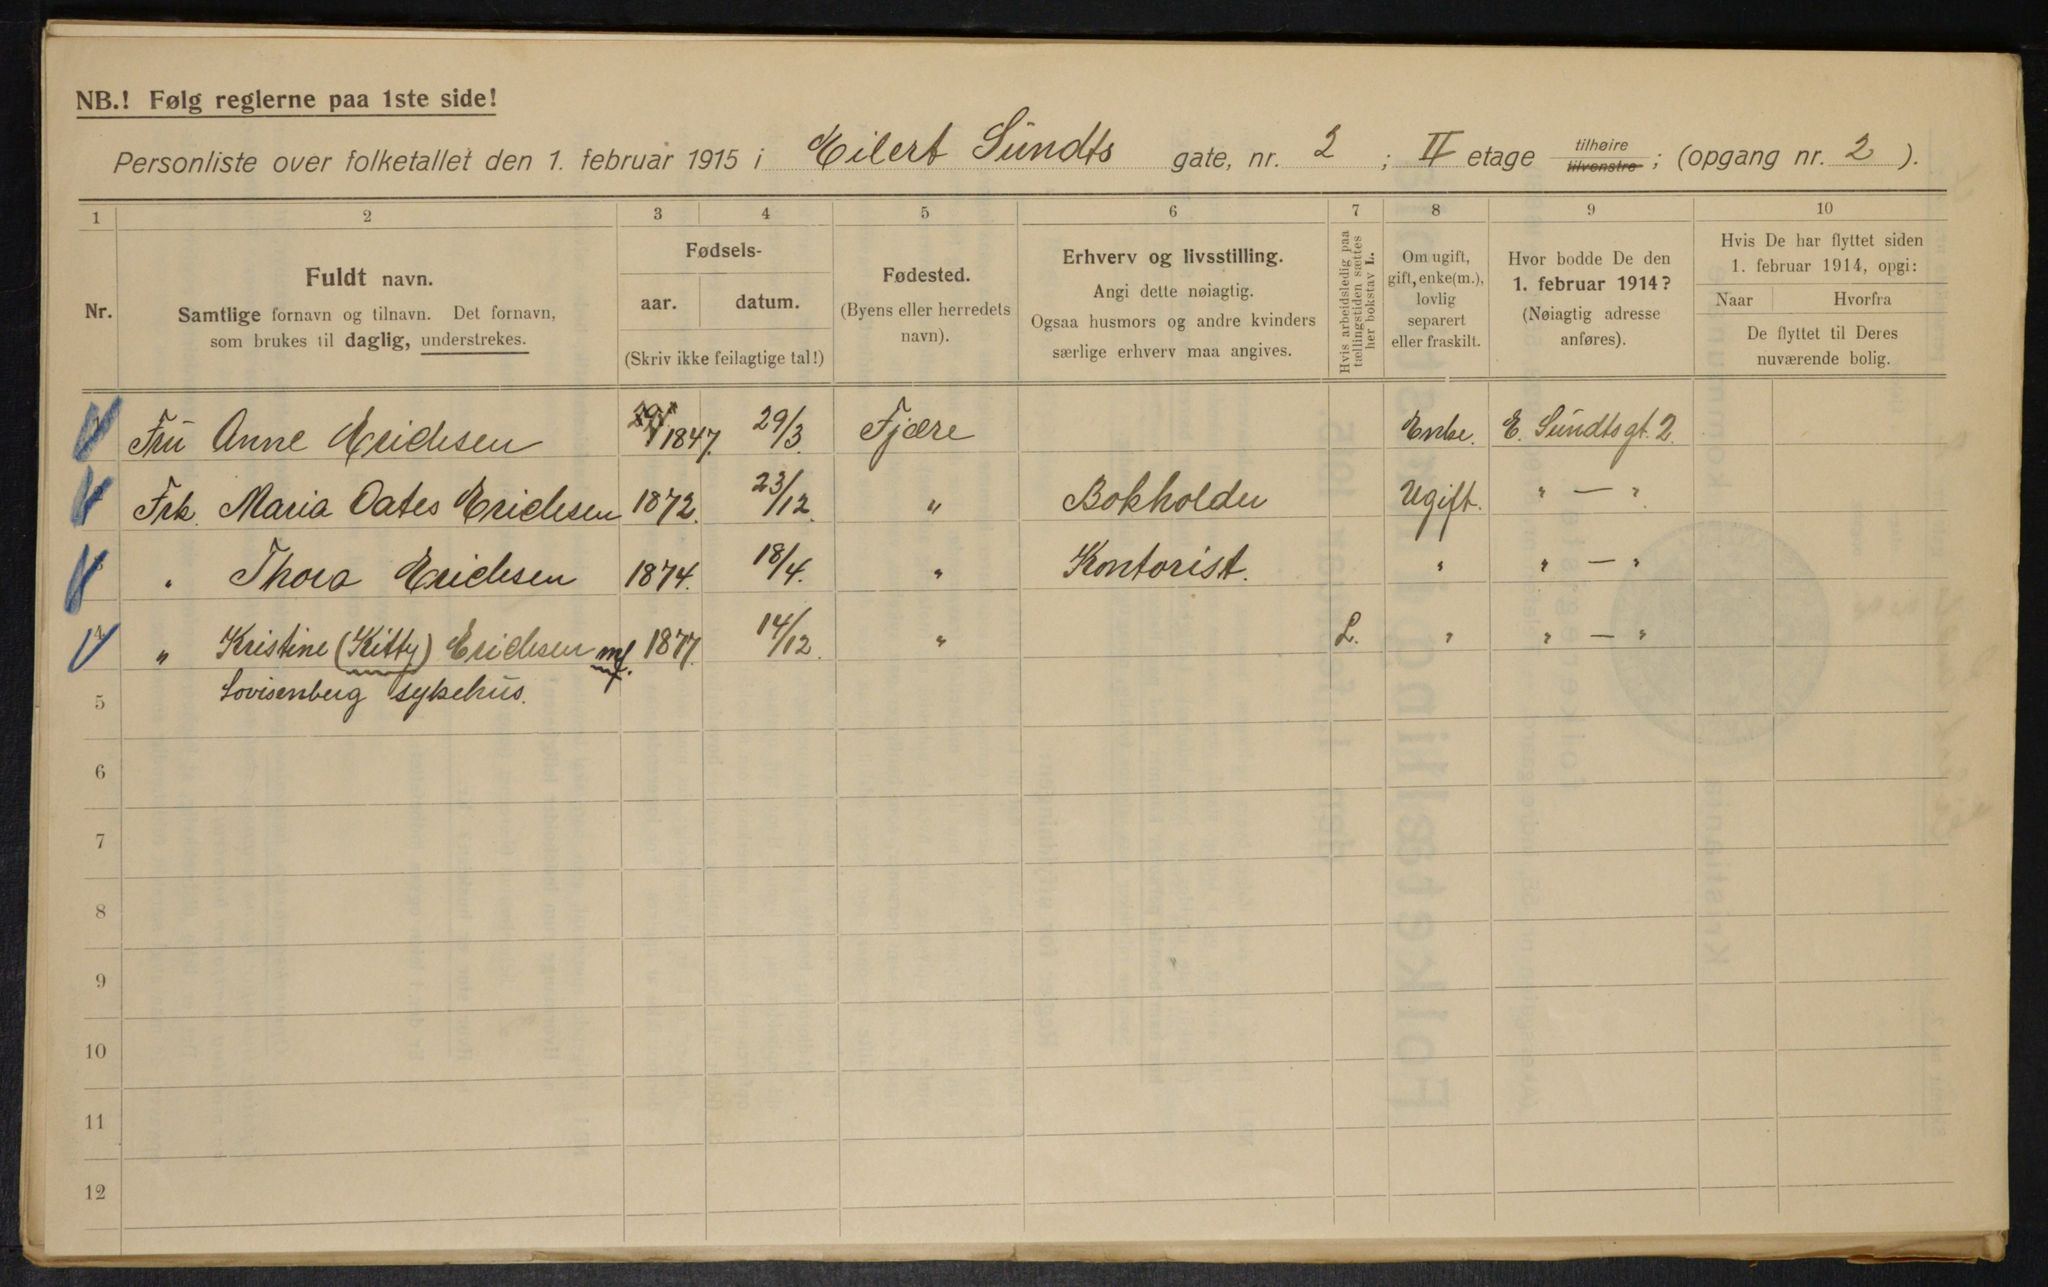 NB.! Følg reglerne paa 1ste side!
Personliste over folketallet den 1. februar 1915 i Eilert Sundts gate, nr. 2 ; II etage tilhøire tilvenstre ; (opgang nr. 2 ).
1 2 3 4 5 6 7 8 9 10
Nr.
Fuldt navn.
Samtlige fornavn og tilnavn. Det fornavn,
som brukes til daglig, understrekes.
Fødsels-
aar. datum.
(Skriv ikke feilagtige tal!)
Fødested.
(Byens eller herredets
navn).
Erhverv og livsstilling.
Angi dette nøiagtig.
Ogsaa husmors og andre kvinders
særlige erhverv maa angives.
Hvis arbeidsledig paa
tællingstiden sættes
her bokstav L.
Om ugift,
gift, enke(m.),
lovlig
separert
eller fraskilt.
Hvor bodde De den
1. februar 1914?
(Nøiagtig adresse
anføres).
Hvis De har flyttet siden
1. februar 1914, opgi:
Naar Hvorfra
De flyttet til Deres
nuværende bolig.
Fru Anne Erichsen 1847. 29/3. Fjære Enke. E. Sundtsgt. 2
Frk. Maria Oates Erichsen 1872. 23/12. " Bokholder Ugift. " — "
" Thora Erichsen 1874. 18/4. " Kontorist. " " — "
4 " Kristine (Kitty) Erichsen mf. 1877. 14/12. " L. " " — "
5 Lovisenberg sykehus.
6
7
8
9
10
11
12